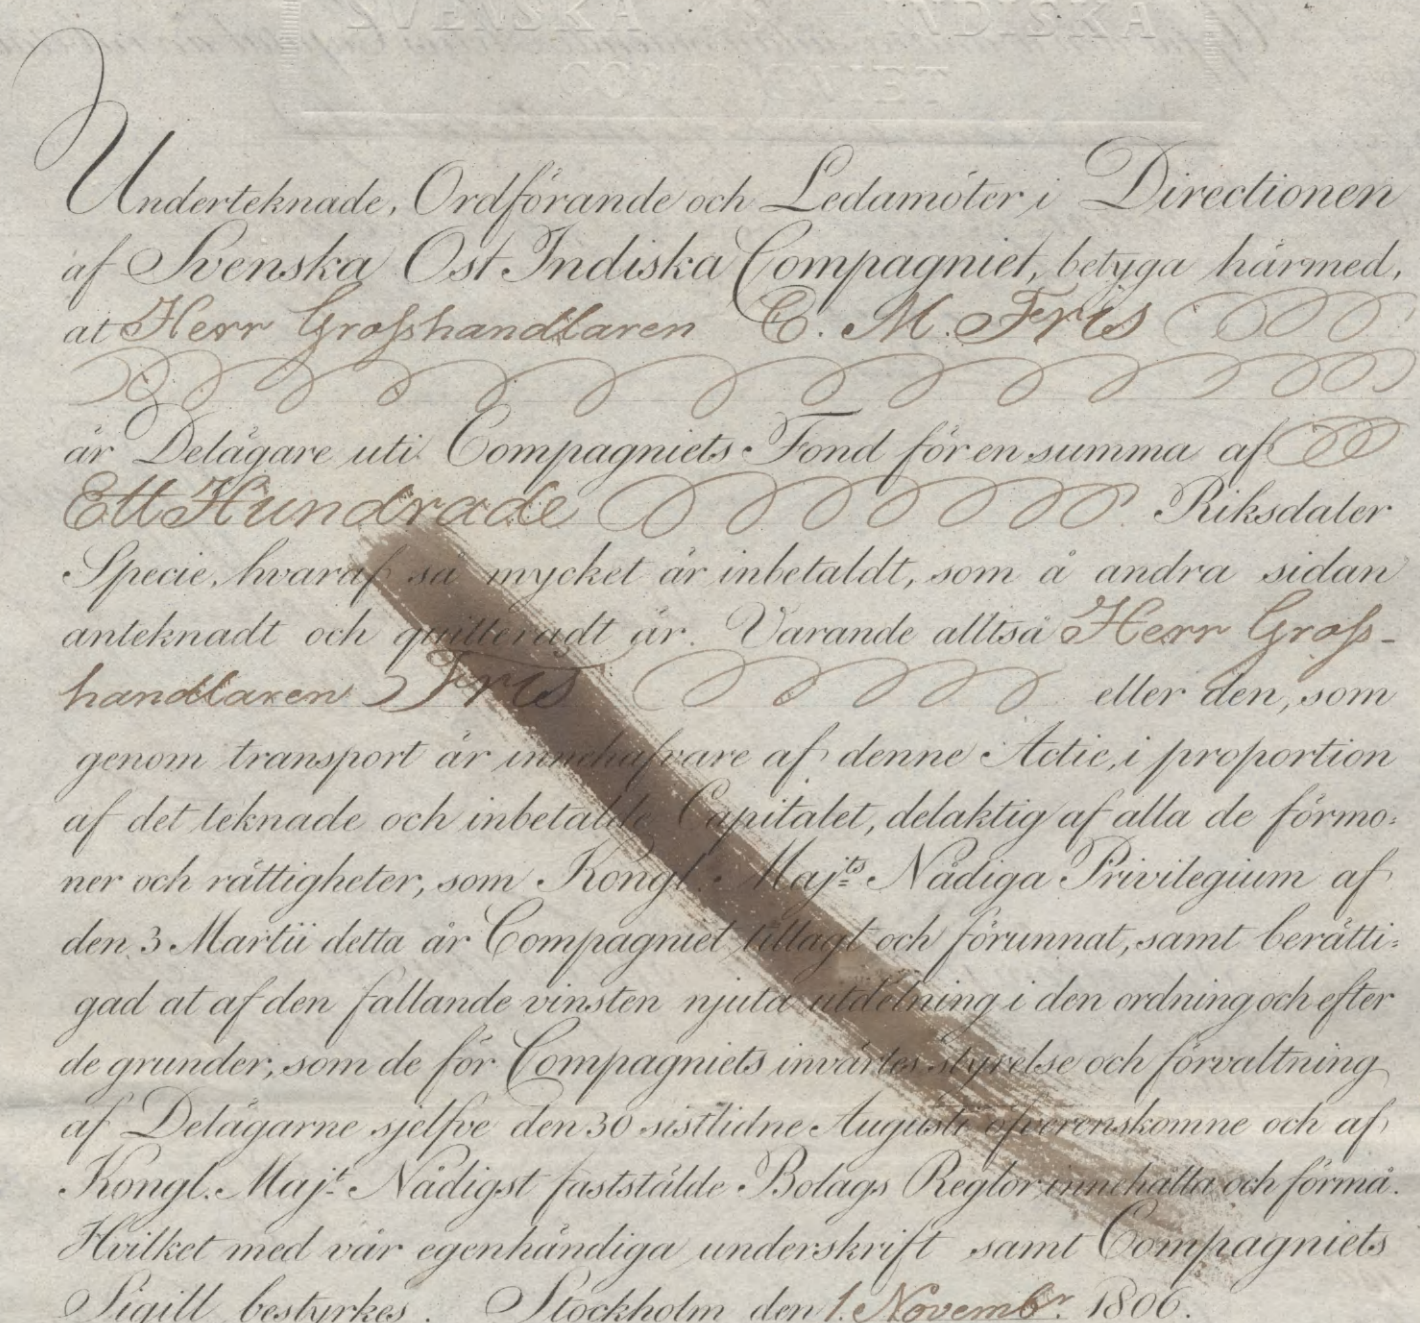 SVENSKA INDISKA
COMPAGNIET
Underteknade, Ordförande och Ledamöter i Directionen
af Svenska Ost Indiska Compagniet, betyga härmed,
at Herr Grosshandlaren C. M. Fris
är Delägare uti Compagniets Fond för en summa af
Ett Hundrade Riksdaler
Specie, hvaraf så mycket är inbetaldt, som å andra sidan
anteknadt och quitteradt är. Varande alltså Herr Gross-
handlaren Fris eller den, som
genom transport är innehafvare af denne Actie, i proportion
af det teknade och inbetalde Capitalet, delaktig af alla de förmo=
ner och rättigheter, som Kongl. Majts Nådiga Privilegium af
den 3 Martii detta år Compagniet tillagt och förunnat, samt berätti=
gad at af den fallande vinsten njuta utdelning i den ordning och efter
de grunder, som de för Compagniets invärtes styrelse och förvaltning
af Delägarne sjelfve den 30 sistlidne Augusti öfverenskomne och af
Kongl. Majt Nådigst faststälde Bolags Reglor innehålla och förmå.
Hvilket med vår egenhändiga underskrift samt Compagniets
Sigill bestyrkes. Stockholm den 1. Novembr. 1806.